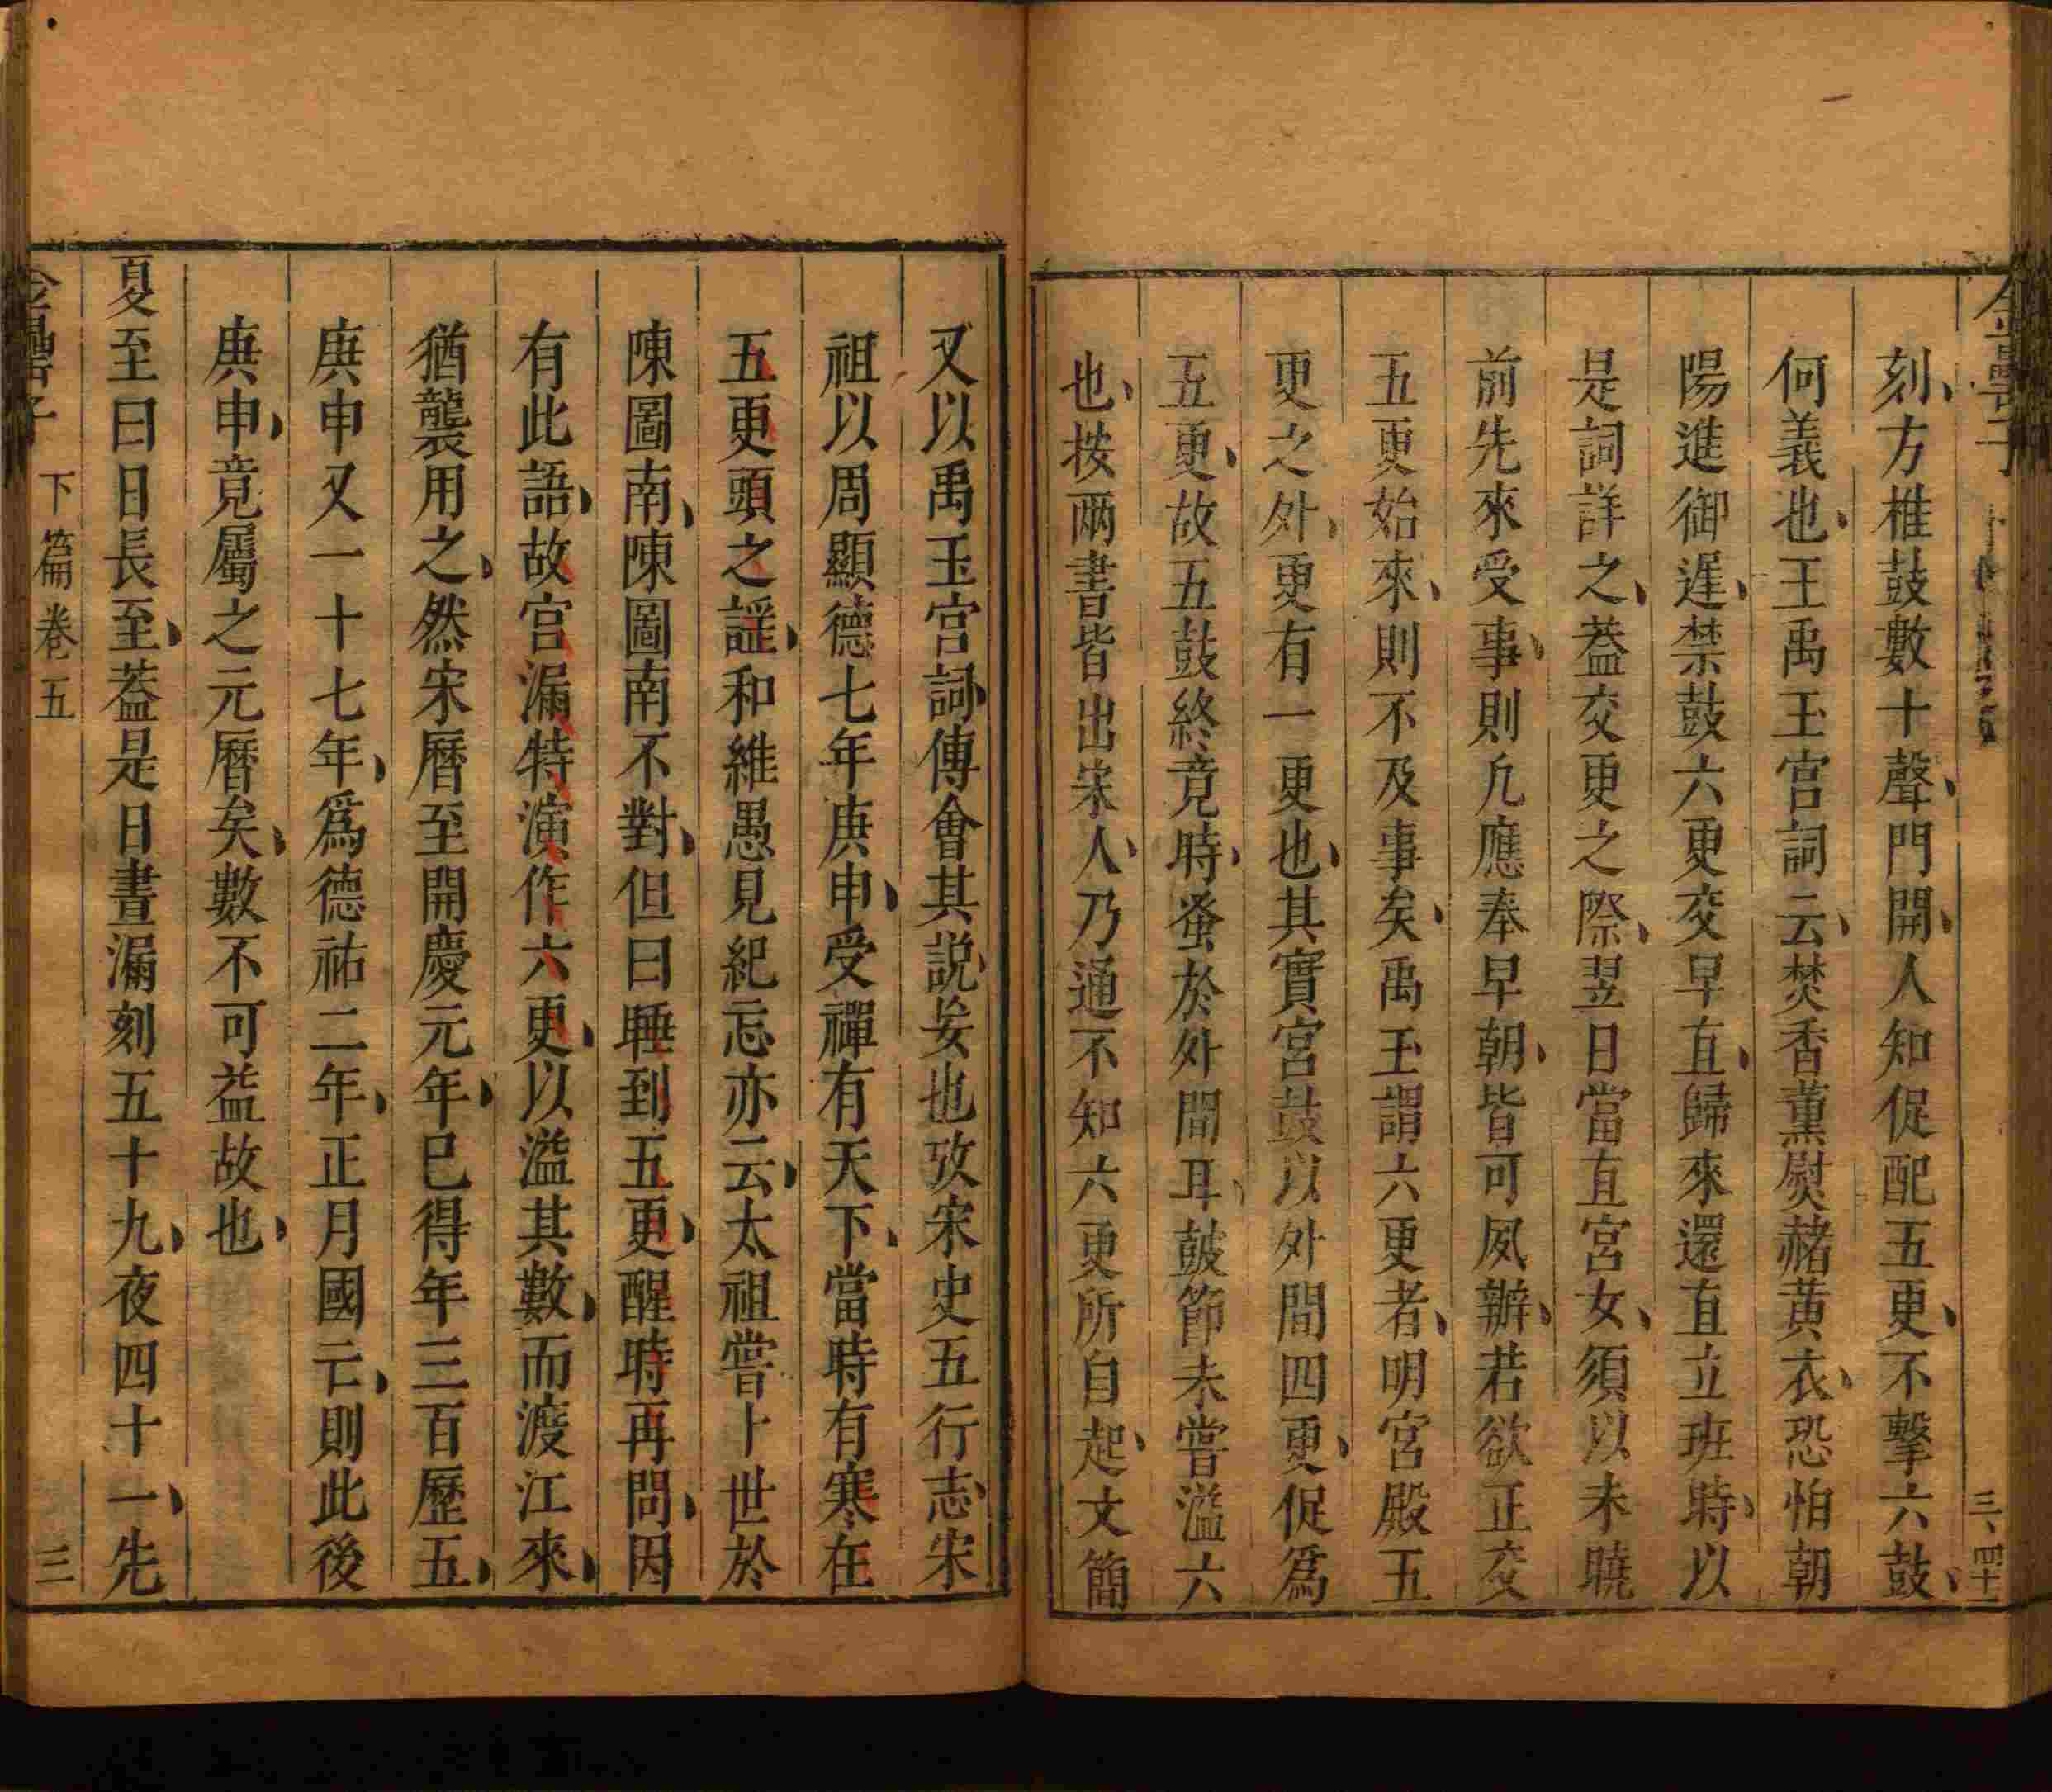 刻、方椎鼓數十聲、門開、人知促配五更、不擊六鼓、
何義也、王禹玉宮詞云、焚香薰熨赭黃衣、恐怕朝
陽進御遲、禁鼓六更交早直、歸來還直立班時、以
是詞詳之、蓋交更之際、翌日當直宮女、須以未曉
前先來受事、則凡應奉早朝、皆可夙辦、若欲正交
五更始來、則不及事矣、禹玉謂六更者、明宮殿五
更之外、更有一更也、其實宮鼓以外間四更、促爲
五更、故五鼓終竟時、蚤於外間耳、鼓節未嘗溢六
也、按兩書皆出宋人、乃通不知六更所自起、文簡
又以禹玉宮詞、傅會其説、妄也攷宋史五行志、宋
祖以周顯德七年庚申、受禪有天下、當時有寒在
五更頭之謡、和維愚見紀忘亦云、太祖嘗卜世於
陳圖南、陳圖南不對、但曰睡到五更、醒時再問、因
有此語、故宮漏特演作六更、以溢其數、而渡江來、
猶襲用之、然宋曆至開慶元年、已得年三百歷五、
庚申又一十七年、爲德祐二年、正月國亡、則此後
庚申、竟屬之元曆矣、數不可益故也、
夏至曰日長至、蓋是日晝漏刻五十九、夜四十一、先
下篇卷五
三
金罍子
三、四十一